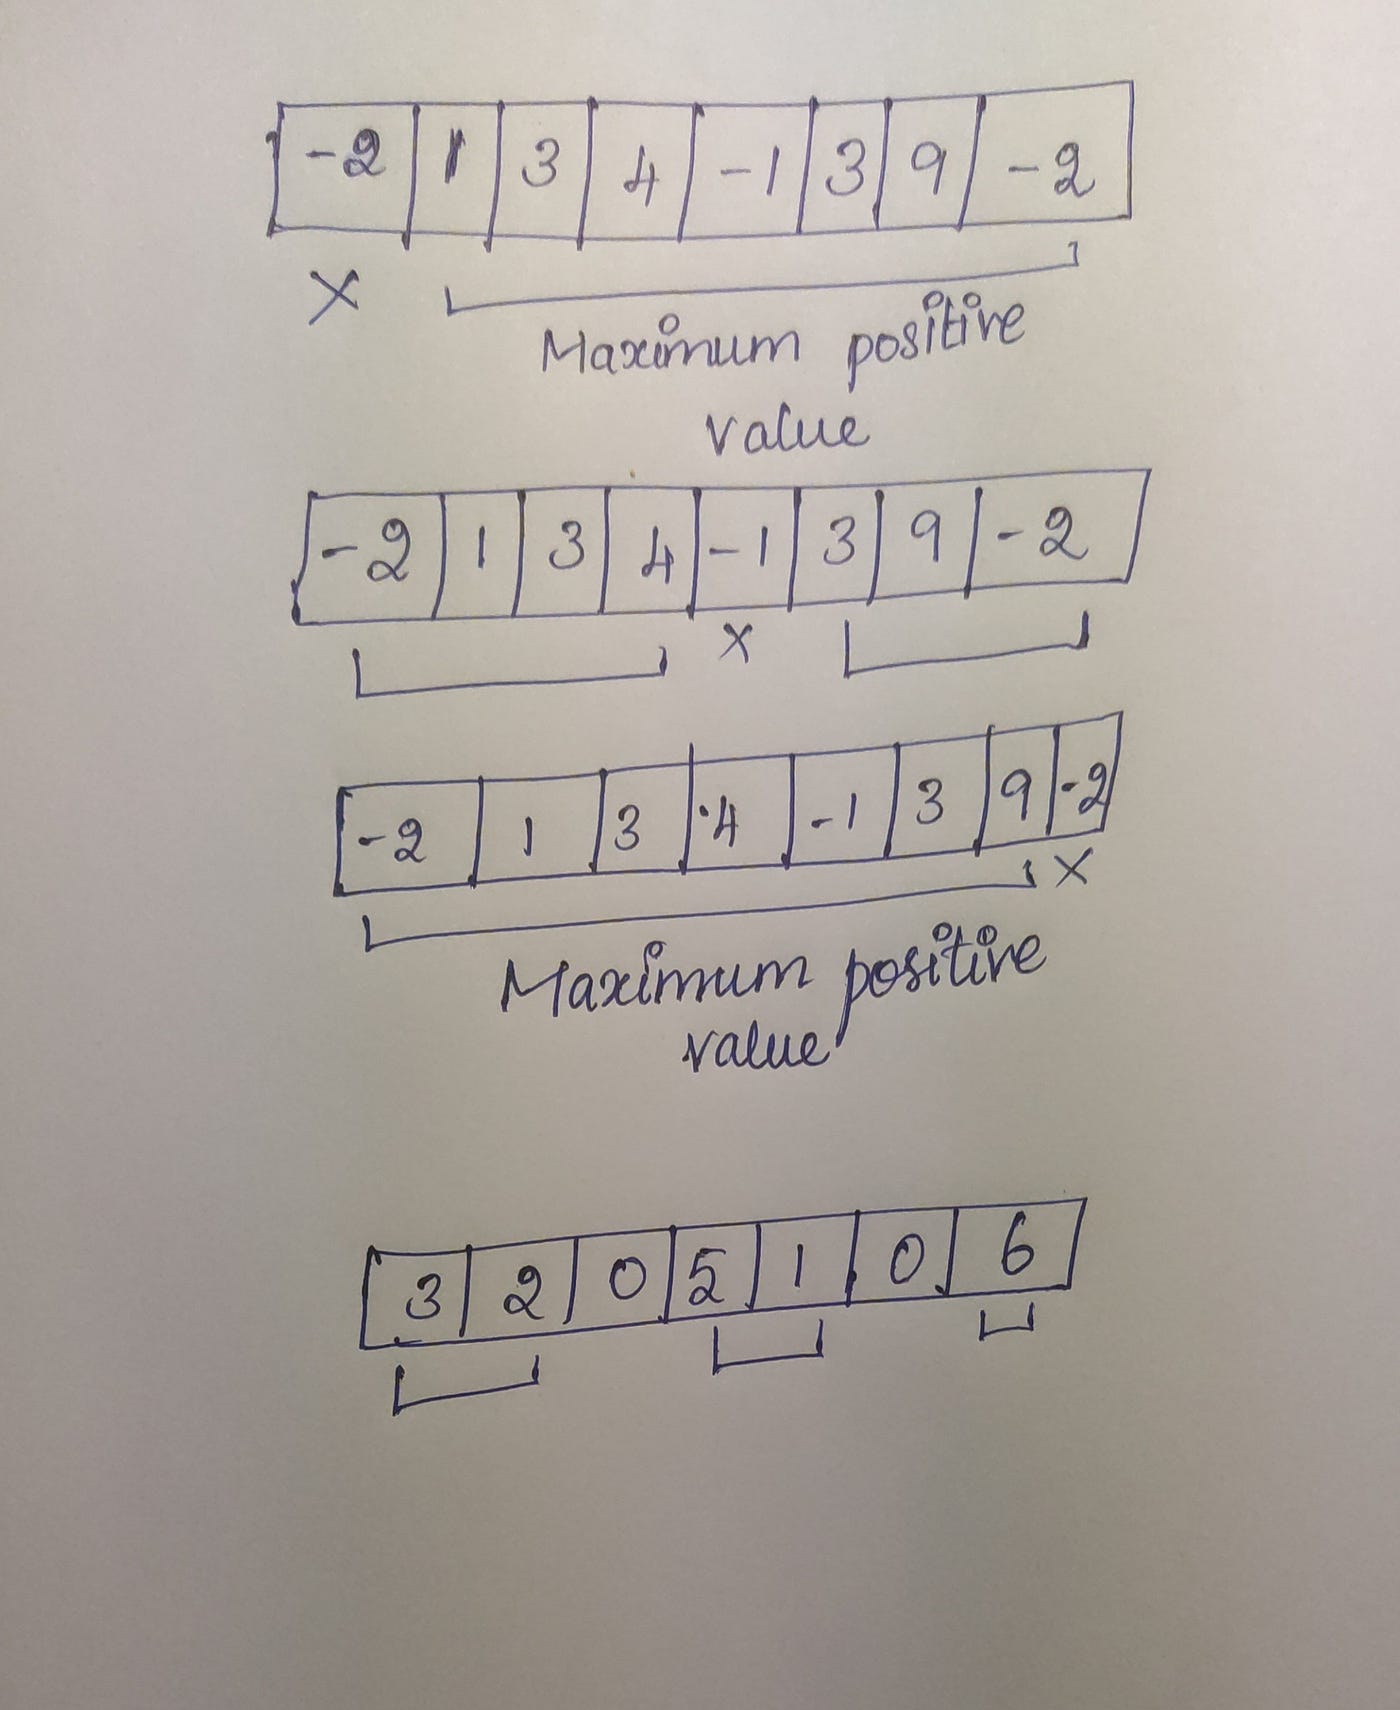 -2 1 3 4 -1 3 9 -2
X
Maximum positive
value
-2 1 3 4 -1 3 9 -2
X
-2 1 3 4 -1 3 9 -2
X
Maximum positive
value
3 2 0 5 1 0 6